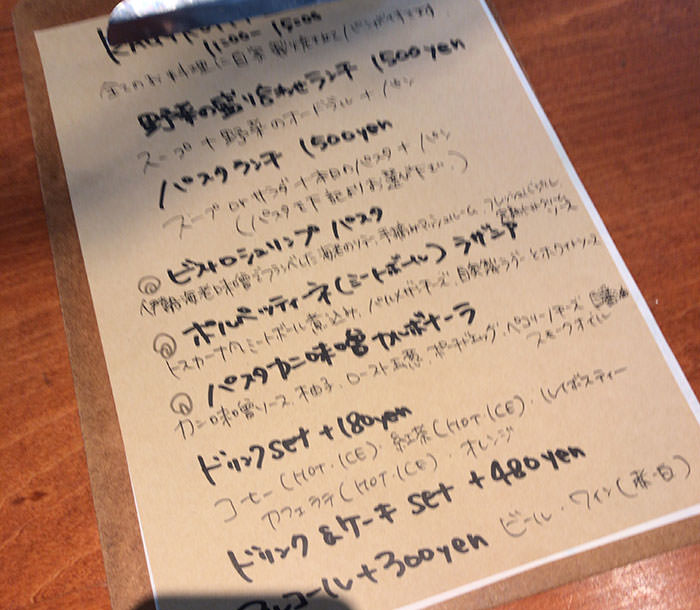 11:00 - 15:00
全てのお料理に自家製
野菜の盛り合わせランチ 1500yen
スープ + 野菜のオードブル + パン
パスタランチ 1500yen
スープ or サラダ + 本日のパスタ + パン
(パスタを下記よりお選び下さい)
ビストロシュリンプ パスタ
海老のソテー、手摘みマッシュルーム、フレッシュバジル
ソース
ポルペッティーネ(ミートボール) ラザニア
トスカーナ ミートボール煮込み、パルメザンチーズ、自家製ラグーとホワイトソース
パスタカニ味噌カルボナーラ
カニ味噌ソース、柚子、ロースト玉葱、ポーチドエッグ、ペコリーノチーズ
スモークオイル
ドリンクset + 180yen
コーヒー(HOT・ICE)・紅茶(HOT・ICE)・ルイボスティー
カフェラテ(HOT・ICE)・オレンジ
ドリンク&ケーキ set + 480yen
アルコール + 300yen ビール・ワイン(赤・白)